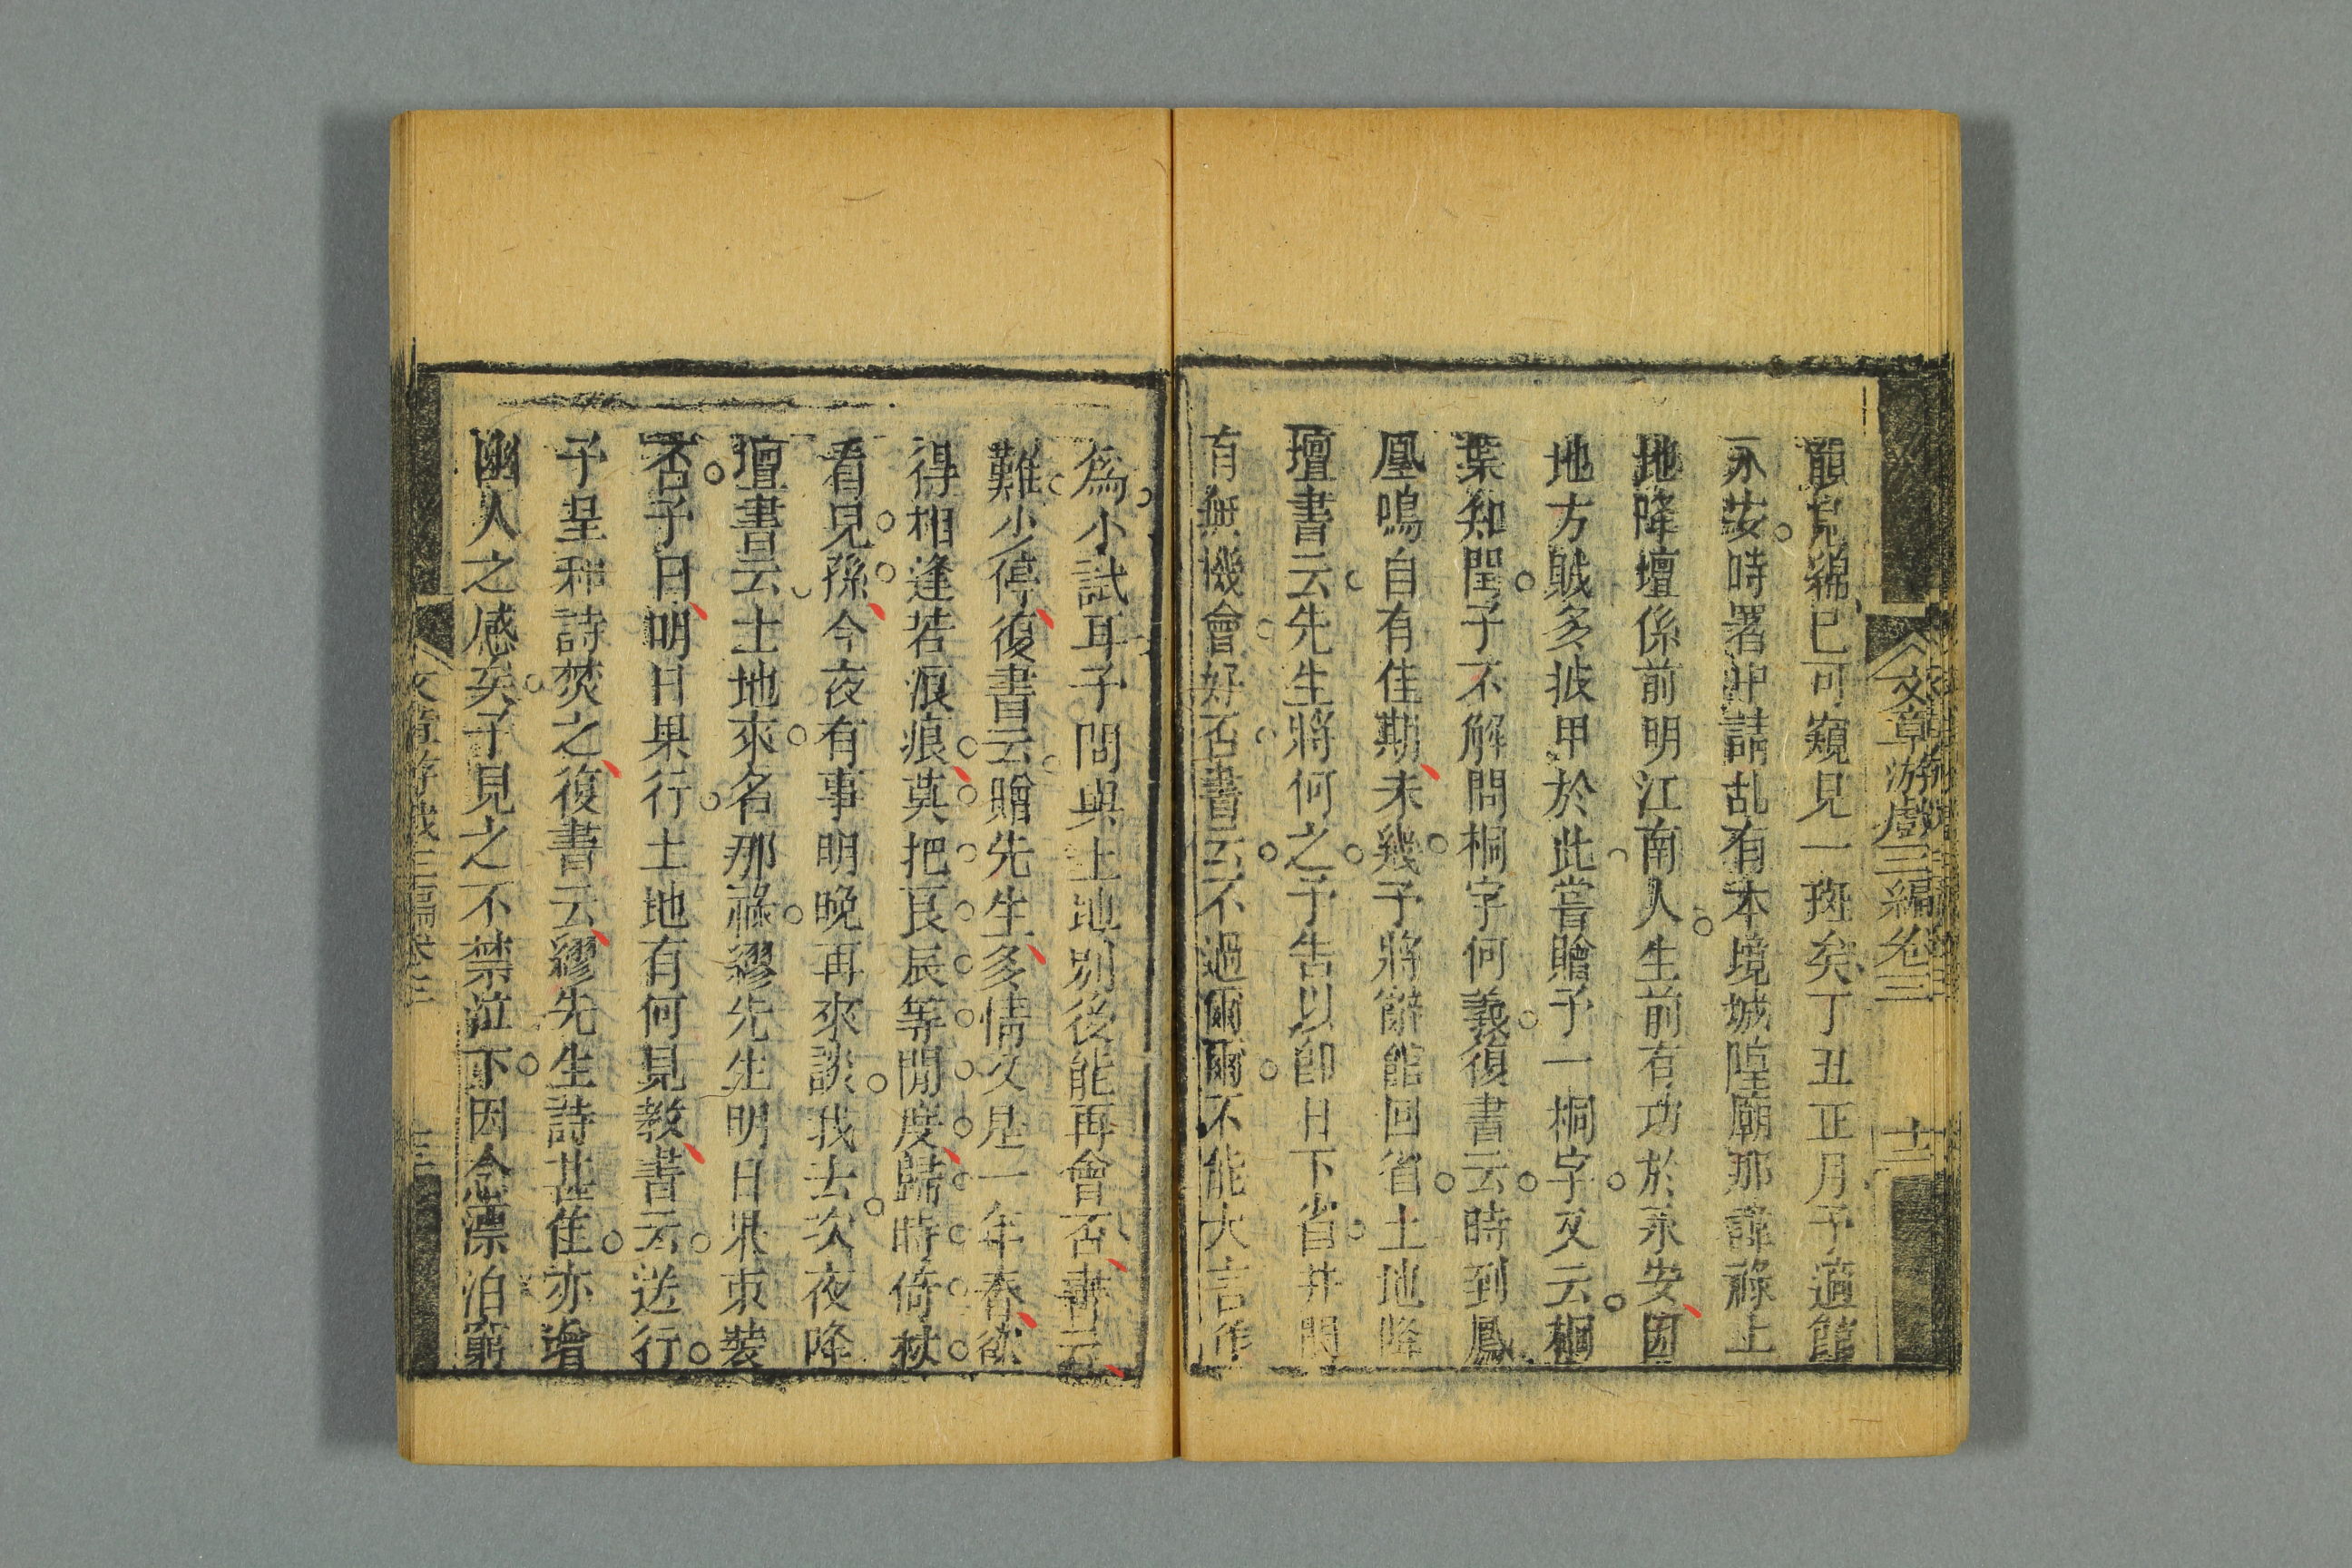 文章游戲三編卷三
十二
韻見綿已可窺見一斑矣丁丑正月予適館
永安時署中請乩有本境城隍廟那諱祿土
地降壇係前明江南人生前有功於永安因
地方賊多披甲於此嘗贈予一桐字又云桐
葉知閏子不解問桐字何義復書云時到鳳
凰鳴自有佳期未幾予將辭館回省土地降
壇書云先生將何之予告以卽日下省并問
有無機會好否書云不過爾爾不能大言作
爲小試耳子問與土地別後能再會否書云
難少停復書云贈先生多情又是一年春欲
得相逢若痕痕莫把良辰等閒度歸時倚杖
看兒孫今夜有事明晚再來談我去次夜降
壇書云土地來名那祿繆先生明日果束裝
否子曰明日果行土地有何見教書云送行
子呈和詩焚之復書云繆先生詩甚佳亦增
幽人之感矣子見之不禁泣下因念漂泊窮
文章游戲三編卷三